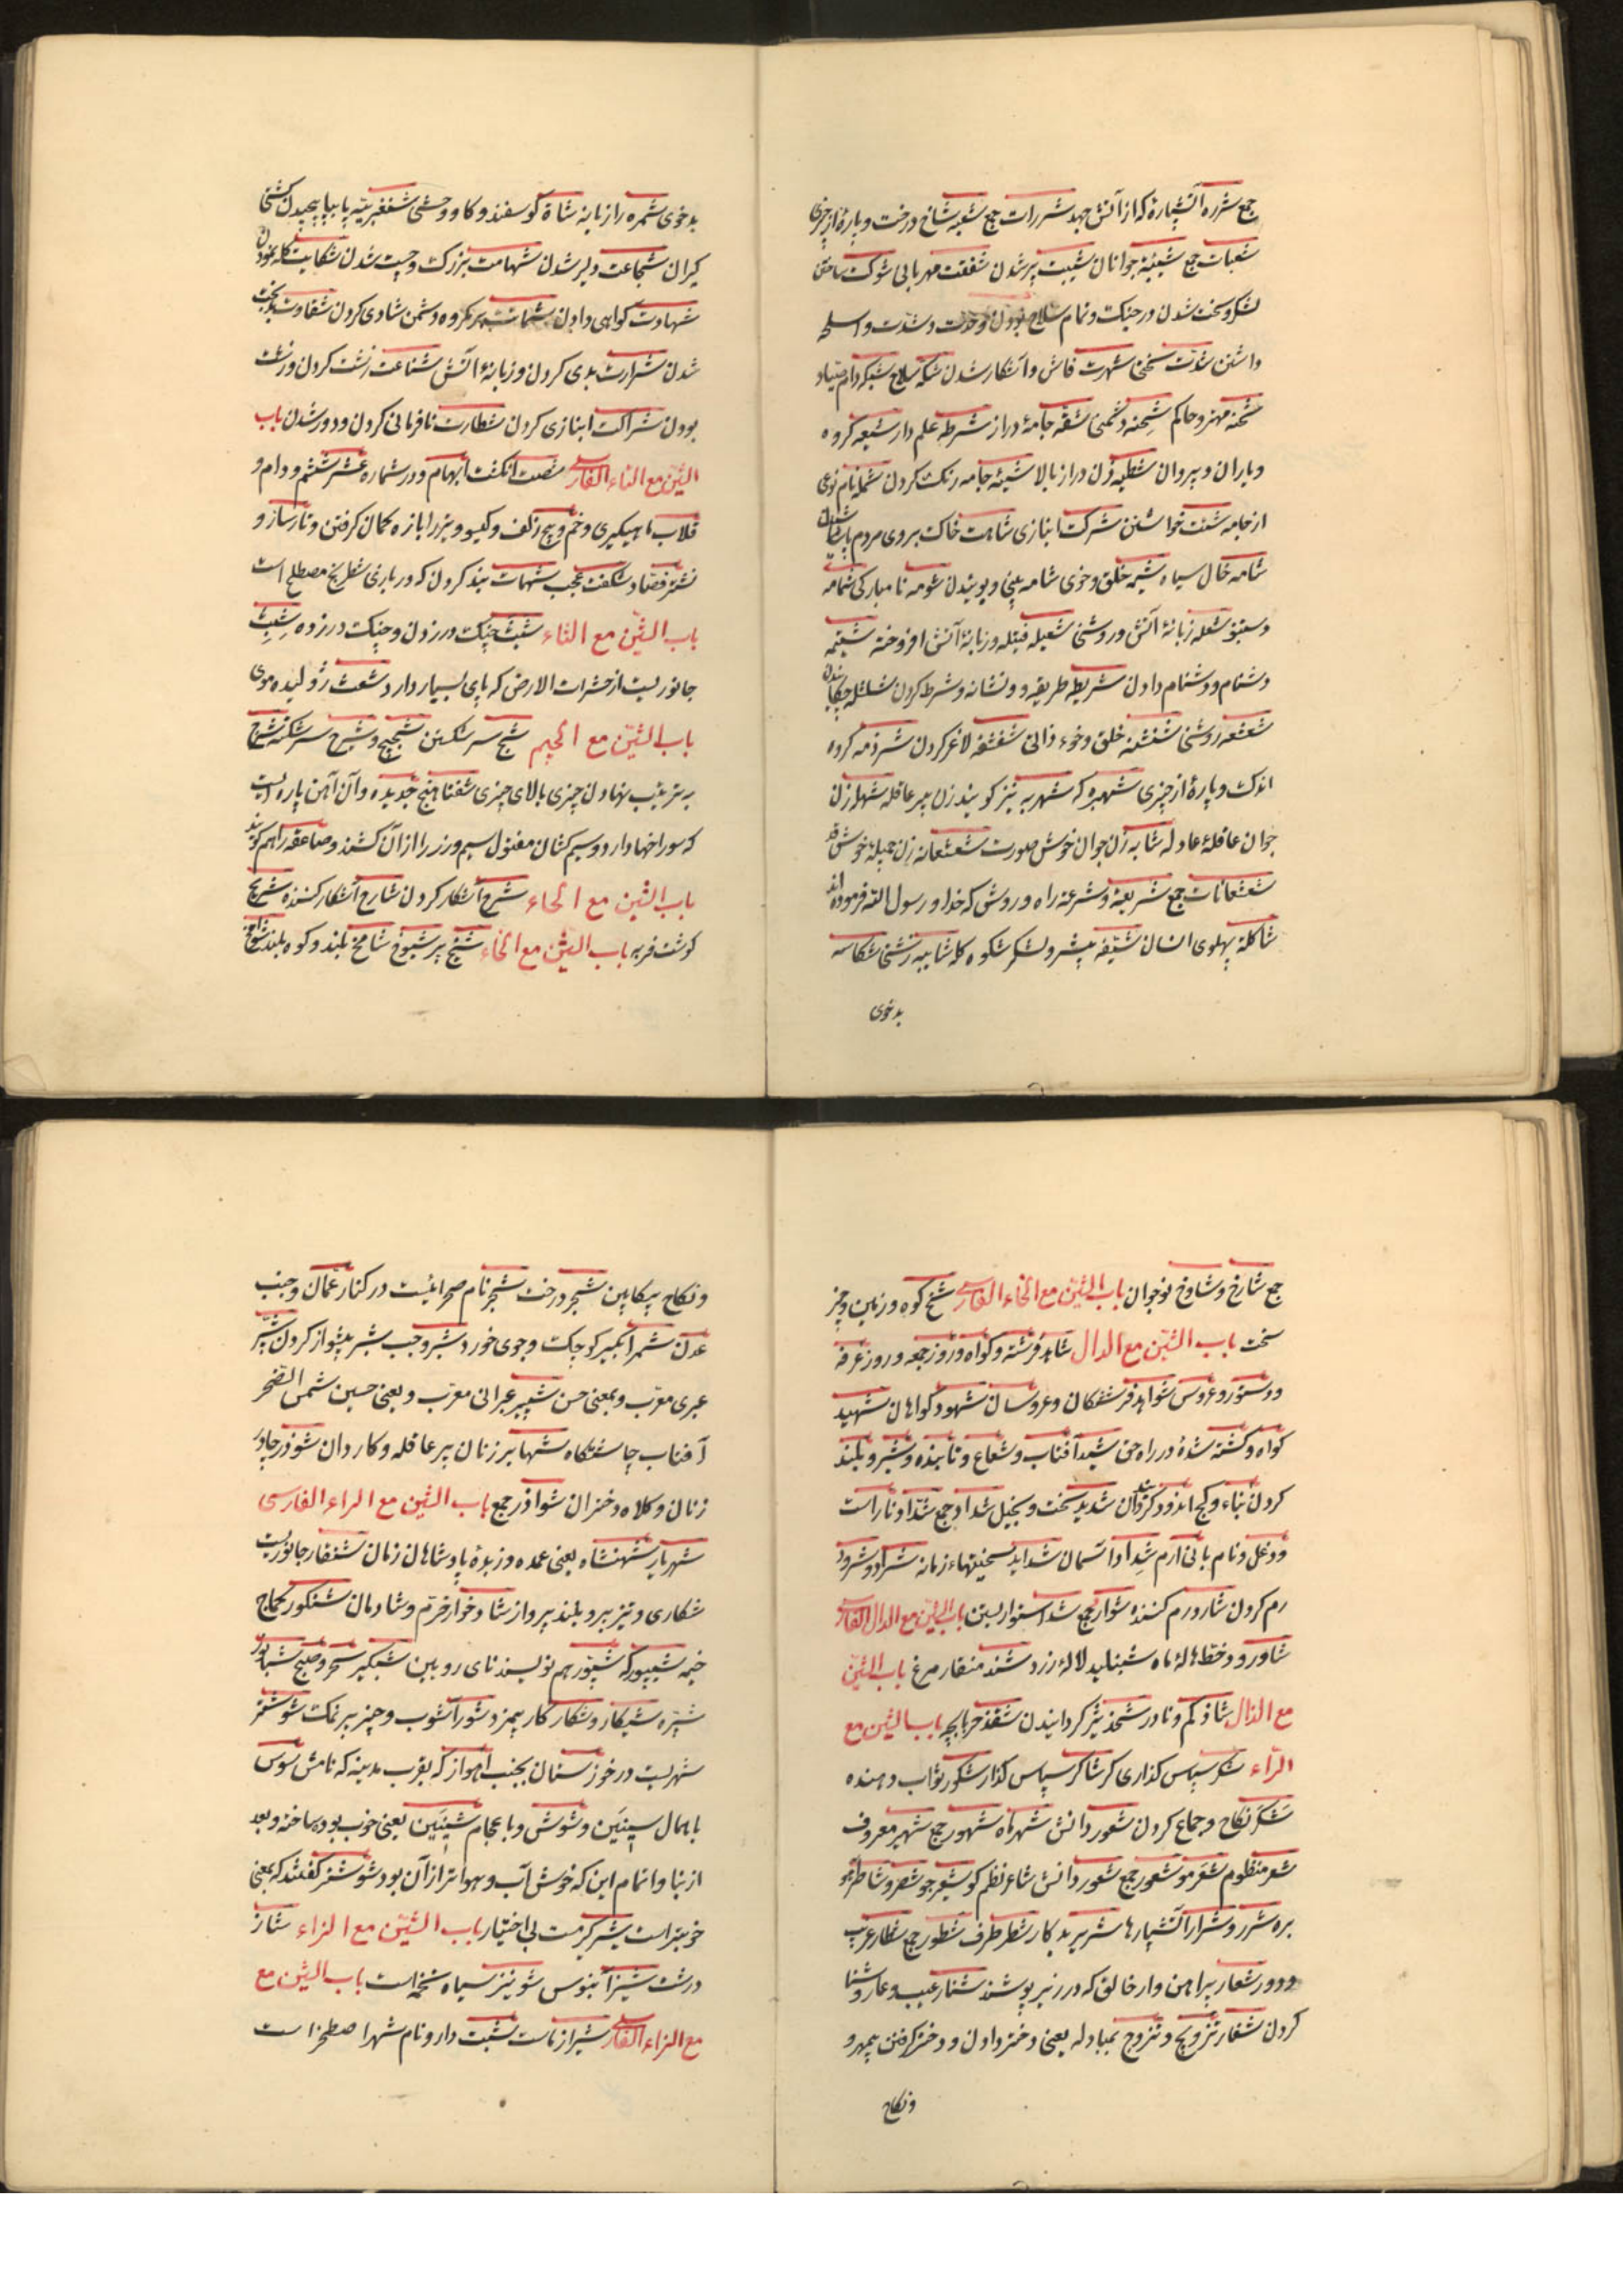 جمع شرره آتشپارهٔ که از آتش جهد شررات جمع شعبه شاخ درخت و پارهٔ از چیزی
شعبات جمع شبیبة جوانان شیبت پیر شدن شفقت مهربانی شوکت ساختن
لشکر و سخت شدن در جنگ و تمام سلاح بودن و حدت و شدت و اسلحه
داشتن شدت سختی شهرت فاش و آشکار شدن شکه سلاح شبکه دام صیاد
شحنه مهتر و حاکم شحنه دشمنی شقه جامهٔ دراز شرطه علم دار شیعه گروه
و یاران و پیروان شطبه زن دراز بالا شیئه جامه رنگ کردن شمله نام نوعی
از جامه شنت خواستن شرکت انبازی شاهت خاک بروی مردم پاشیدن
شامه خال سیاه شیمه خلق و خوی شامه بینی و بویندن شومه نامبارکی شمامه
دستنبو شعله زبانهٔ آتش و روشنی شعیله فتیله و زبانهٔ آتش افروخته شتیمه
دشنام و دشنام دادن شریطه طریقه و نشانه و شرطه کردن شلشله چکانیدن
شعشعه روشنی شنشنه خلق و خوء ذاتی شفشفه لاغر کردن شرذمه گروه
اندک و پارهٔ از چیزی شهبره که شهربه نیز گویند زن پیر عاقله شهله زن
جوان عاقلهٔ عادله شابه زن جوان خوش صورت شعشعانه زن جمیلهٔ خوش قد
شعشعانات جمع شریعة و شرعه راه و روش که خدا و رسول الله فرموده‌اند
شاکلة پهلوی انسان شیقه پیشرو لشکر شکوه کله شایبه زشتی شکاسه
بدخوی
بدخوی شمره راز یانه شاة گوسفند و گاو وحشی شغغربیّه پا بپا پیچیدن کشتی
گیران شجاعت دلیر شدن شهامت بزرگ و چست شدن شکایت گله نمودن
شهادت گواهی دادن شماتت بر مکروه دشمن شادی کردن شقاوت بدبخت
شدن شرارت بدی کردن و زبانهٔ آتش شناعت زشت کردن و زشت
بودن شراکت انبازی کردن شطارت نافرمانی کردن و دور شدن باب
الشین مع التاء الفارسی شصت انگشت ابهام و در شماره عشر ششم و دام و
قلاب ماهیگیری و خم و پیچ زلف و گیسو و بزر را بازه کمان گرفتن و تار ساز و
نشتر فصاد شگفت عجب شهمات بند کردن که در بازی شطرنج مصطلح است
باب الشین مع الثاء شبث چنگ در زدن و چنگ در زده شبث
جانوریست از حشرات الارض که پای بسیار دارد شعث ژولیده موی
باب الشین مع الجیم شج سر شکستن شجیج و شج سر شکسته شرج
بترتیب نهادن چیزی بالای چیزی شفتاهنج حدیده و آن آهن پاره ایست
که سوراخها دارد و سیم کشان مفتول سیم و زر را از آن کشند و صاعقه را هم گویند
باب الشین مع الحاء شرح آشکار کردن شارح آشکار کننده شریح
گوشت فربه باب الشین مع الخاء شیخ پیر شیوخ شامخ بلند و کوه بلند شوامخ
جمع شارخ و شاوخ نوجوان باب الشین مع الخاء الفارسی شخ کوه و زمین و چیز
سخت باب الشین مع الدال شاهد فرشته و گواه و روز جمعه و روز عرفه
و دستور و عروس شواهد فرشتگان و عروسان شهود گواهان شهید
گواه و کشته شدهٔ در راه حق شید آفتاب و شعاع و تابنده و شیر و بلند
کردن بناء و کج اندود گردانیدن شدید سخت و بخیل شداد جمع شداد ناراست
و دغل و نام بانی ارم شداد آسمان شداید سختیهاء زمانه شراد و شرود
رم کردن شارد رم کننده شوارد جمع شد استوار بستن باب الشین مع الدال الفارسی
شاورود خط هالهٔ ماه شنبلید لالهٔ زرد شند منقار مرغ باب الشین
مع الذال شاذ کم و نادر شحذ تیز گردانیدن شقذ حربا بچه باب الشین مع
الراء شکر سپاس گذاری کر شاکر سپاس گذار شکور ثواب دهنده
شکر نکاح و جماع کردن شعور دانش شهر ماه شهور جمع شهیر معروف
شعر منظوم شعر مو شعور جمع شعور دانش شاعر نظم گو شعیر جو شصر و شاطر آهو
بره شرر و شرار آتشپارها شریر بد کار شطر طرف شطور جمع شطار غریب
و دور شعار پیراهن وار خالق که در زیر پوشند شنار عیب و عار و شنا
کردن شغار تزویج و تزوج بمبادله یعنی دختر دادن و دختر گرفتن بیمهر و
ونکاح
ونکاح بیکابین شجر درخت شجر نام صحرائیست در کنار عمان و جنب
عدن شمر آبگیر کوچک و جوی خورد شبر وجب شبر پیشواز کردن شبر
عبری معرب و بمعنی حسن شبیر عبرانی معرب و یعنی حسین شمس الضحر
آفتاب چاشتگاه شهابر زنان پیر عاقله و کاردان شوذر چادر
زنان و کلاه دختران شواذر جمع باب الشین مع الراء الفارسی
شهریار شهنشاه یعنی عمده و زبدهٔ پادشاهان زمان شنقار جانوریست
شکاری و تیز پر و بلند پرواز شادخوار خرم و شادمان شنکور کماج
خیمه شیپور که شبپور هم نویسند نای رویین شبگیر سحر و صبح شباور
شبپره شیکار و شکار کار بیمزد شور آشوب و چیز پر نمک شوشتر
شهریست در خوزستان بجنب اهواز که بقرب مدینه که نامش سوس
باهمال سینین و شوش و باعجام شینین یعنی خوب بود ساخته و بعد
از بنا و اتمام این که خوش آب و هواتر از آن بود شوشتر گفتند که بمعنی
خوبتر است شیر گرمت بی اختیار باب الشین مع الزاء شاز
درشت شیز آبنوس شونیز سیاه تخمه است باب الشین مع
مع الزاء الفارسی شیراز ماست شبت دار و نام شهر اصطخر است